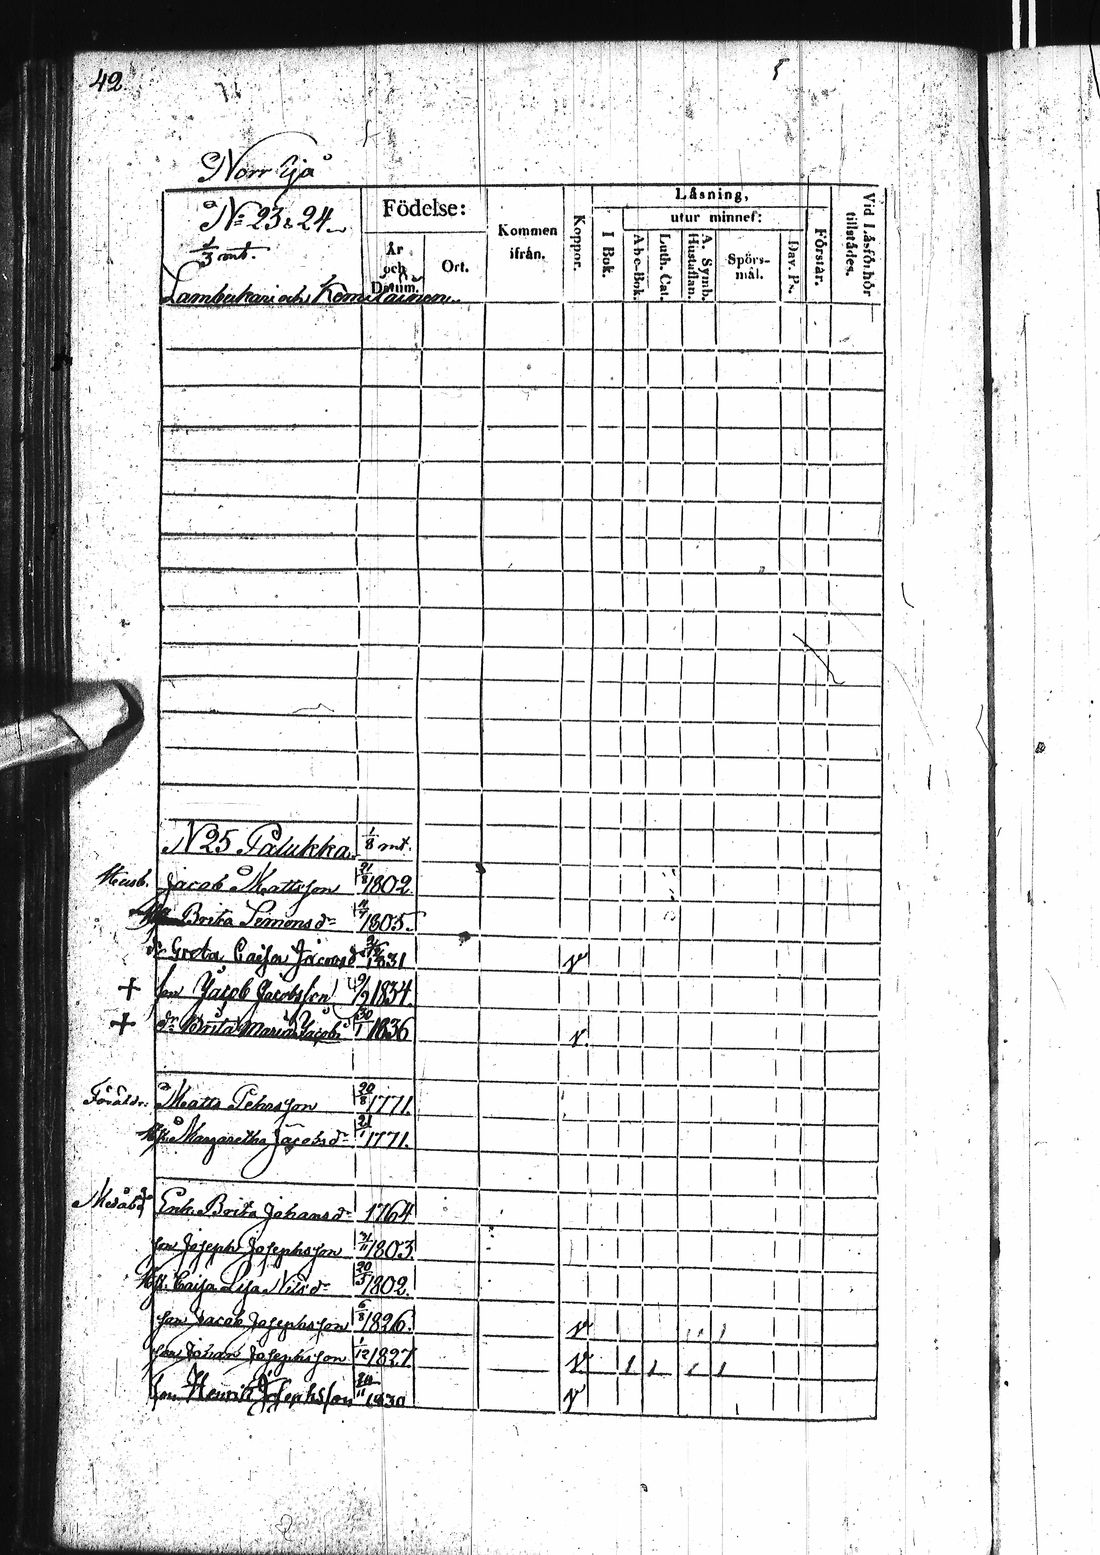 42
Norr Ijå
No 23 & 24.
1/3 mt.
Lambakari och Komulainen.
Födelse:
År och Datum.
Ort.
Kommen ifrån.
Koppor.
Läsning,
I Bok.
utur minnet:
A-b-c-Bok.
Luth. Cat.
A. Symb. Hustaflan.
Spörs-mål.
Dav. Ps.
Förstår.
Vid Läsförhör tillstädes.
N 25 Palukka. 1/8 mt.
Husb. Jacob Mattsson 21/8 1802
Brita Simonsdr 1805.
dr Greta Caisa Jacobsd 1831 v
+ son Jacob Jacobsson 1834.
+ dr Brita Maria Jacobsd 30/1 1836 v
Föräldr. Matts Pehrsson 20/8 1771.
Hu. Margaretha Jacobsdr 21/1 1771.
Enk. Brita Johansdr 1764
son Joseph Josephsson 21/11 1803.
Hu. Caisa Lisa Nilsdr 20/5 1802.
son Jacob Josephsson 6/8 1826. v
son Johan Josephsson 1/12 1827 v
son Henrik Josephsson 1830 v